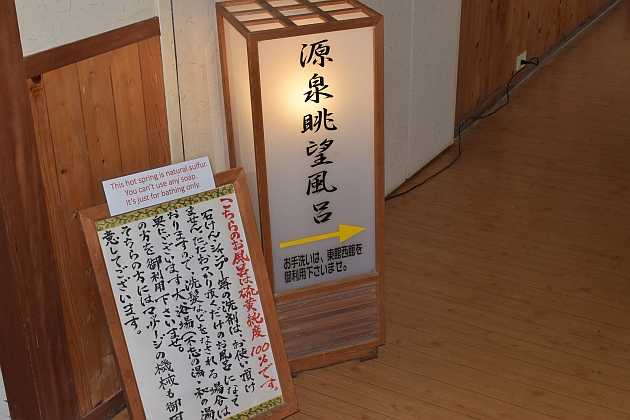 源泉眺望風呂
お手洗いは、東館西館を
御利用下さいませ。
This hot spring is natural sulfur.
You can't use any soap.
It's just for bathing only.
こちらのお風呂は硫黄純度
100%です。
石けん・シャンプー等の洗剤は、お使い頂け
ません。ただおつかり頂くだけのお風呂になて
おりますので、洗髪などをなされる場合は
奥にございます大浴場(不忘の湯・秋の湯
の方を御利用下さいませ。
そちらの方にはマッサージの機械も御用
意してございます。